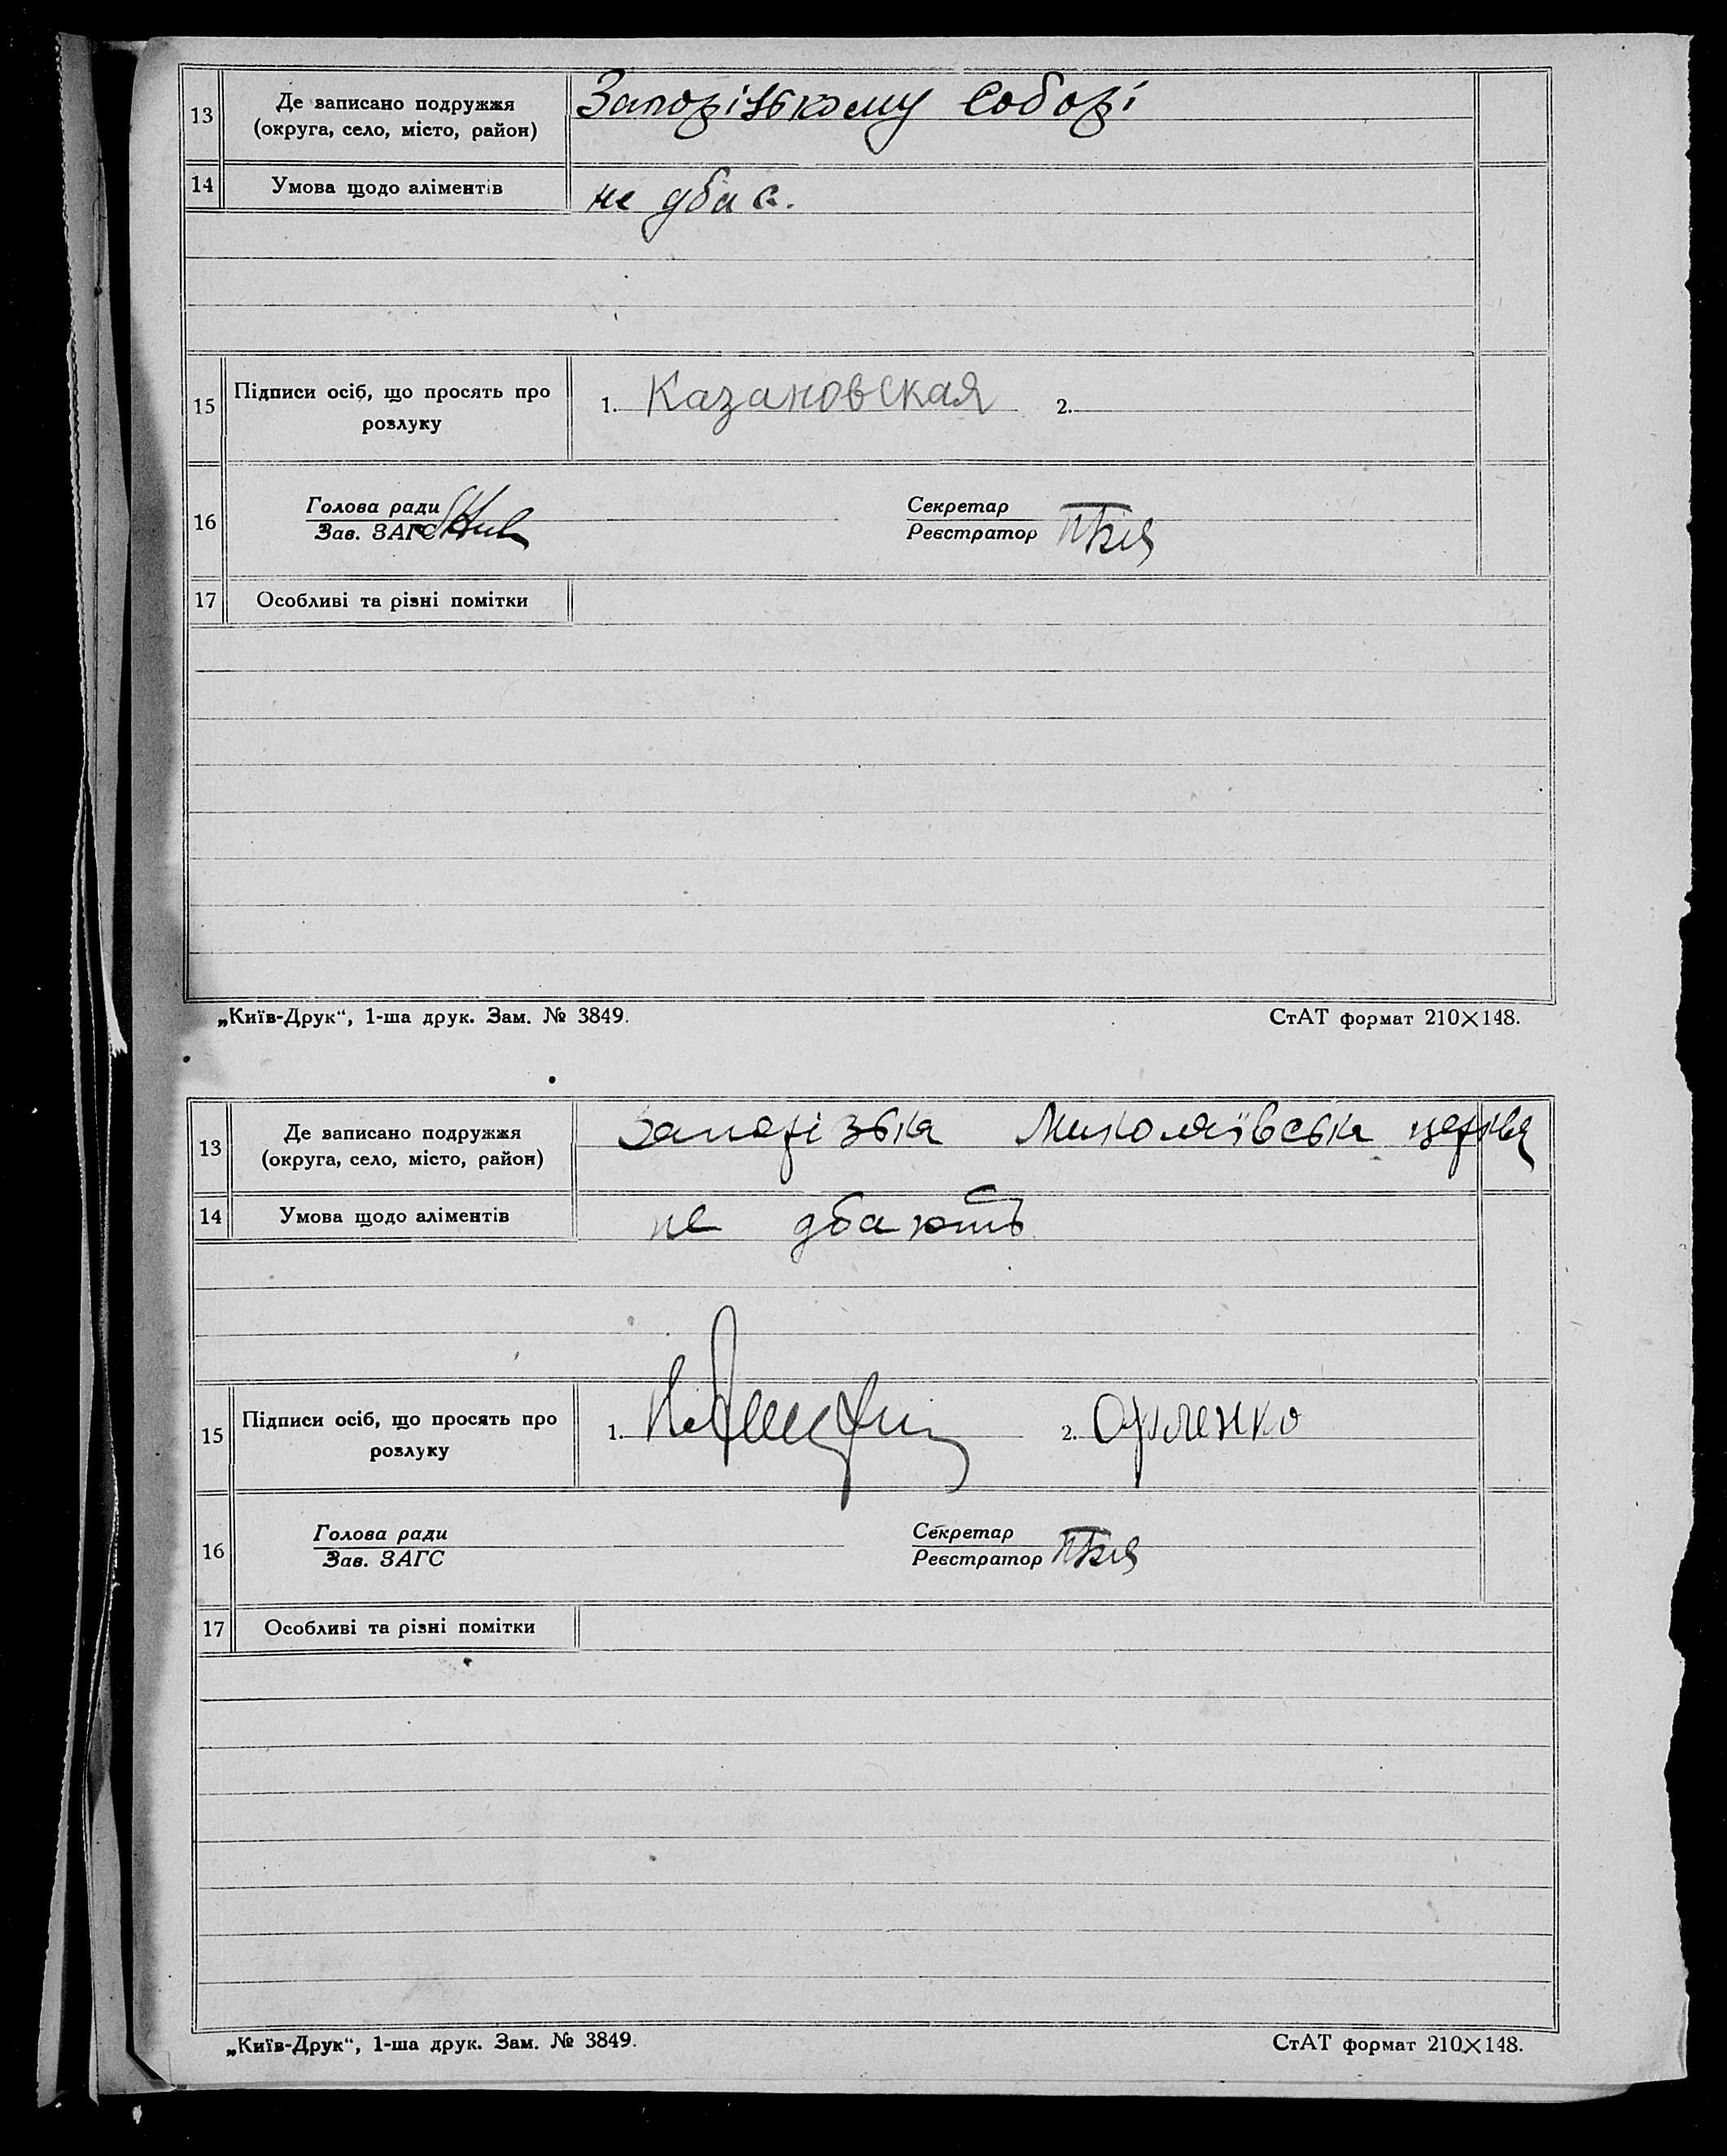 13 Де записано подружжя Запорізькому Соборі
(округа, село, місто, район)
14 Умова щодо аліментів не дбає.
15 Підписи осіб, що просять про 1. Казановская 2.
розлуку
16 Голова ради Секретар
Зав. ЗАГС Реєстратор
17 Особливі та різні помітки
„Київ-Друк“, 1-ша друк. Зам. № 3849. СтАТ формат 210×148.
13 Де записано подружжя Запорізька Миколаївська церква
(округа, село, місто, район)
14 Умова щодо аліментів не дбають
15 Підписи осіб, що просять про 1. 2.
розлуку
16 Голова ради Секретар
Зав. ЗАГС Реєстратор
17 Особливі та різні помітки
„Київ-Друк“, 1-ша друк. Зам. № 3849. СтАТ формат 210×148.